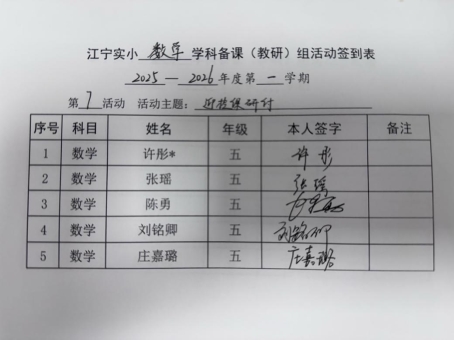 江宁实小 数学 学科备课（教研）组活动签到表
2025—2026年度第一学期
第7活动 活动主题：迎接课研讨
序号 科目 姓名 年级 本人签字 备注
1 数学 许彤* 五 许彤
2 数学 张瑶 五 张瑶
3 数学 陈勇 五
4 数学 刘铭卿 五 刘铭卿
5 数学 庄嘉璐 五 庄嘉璐